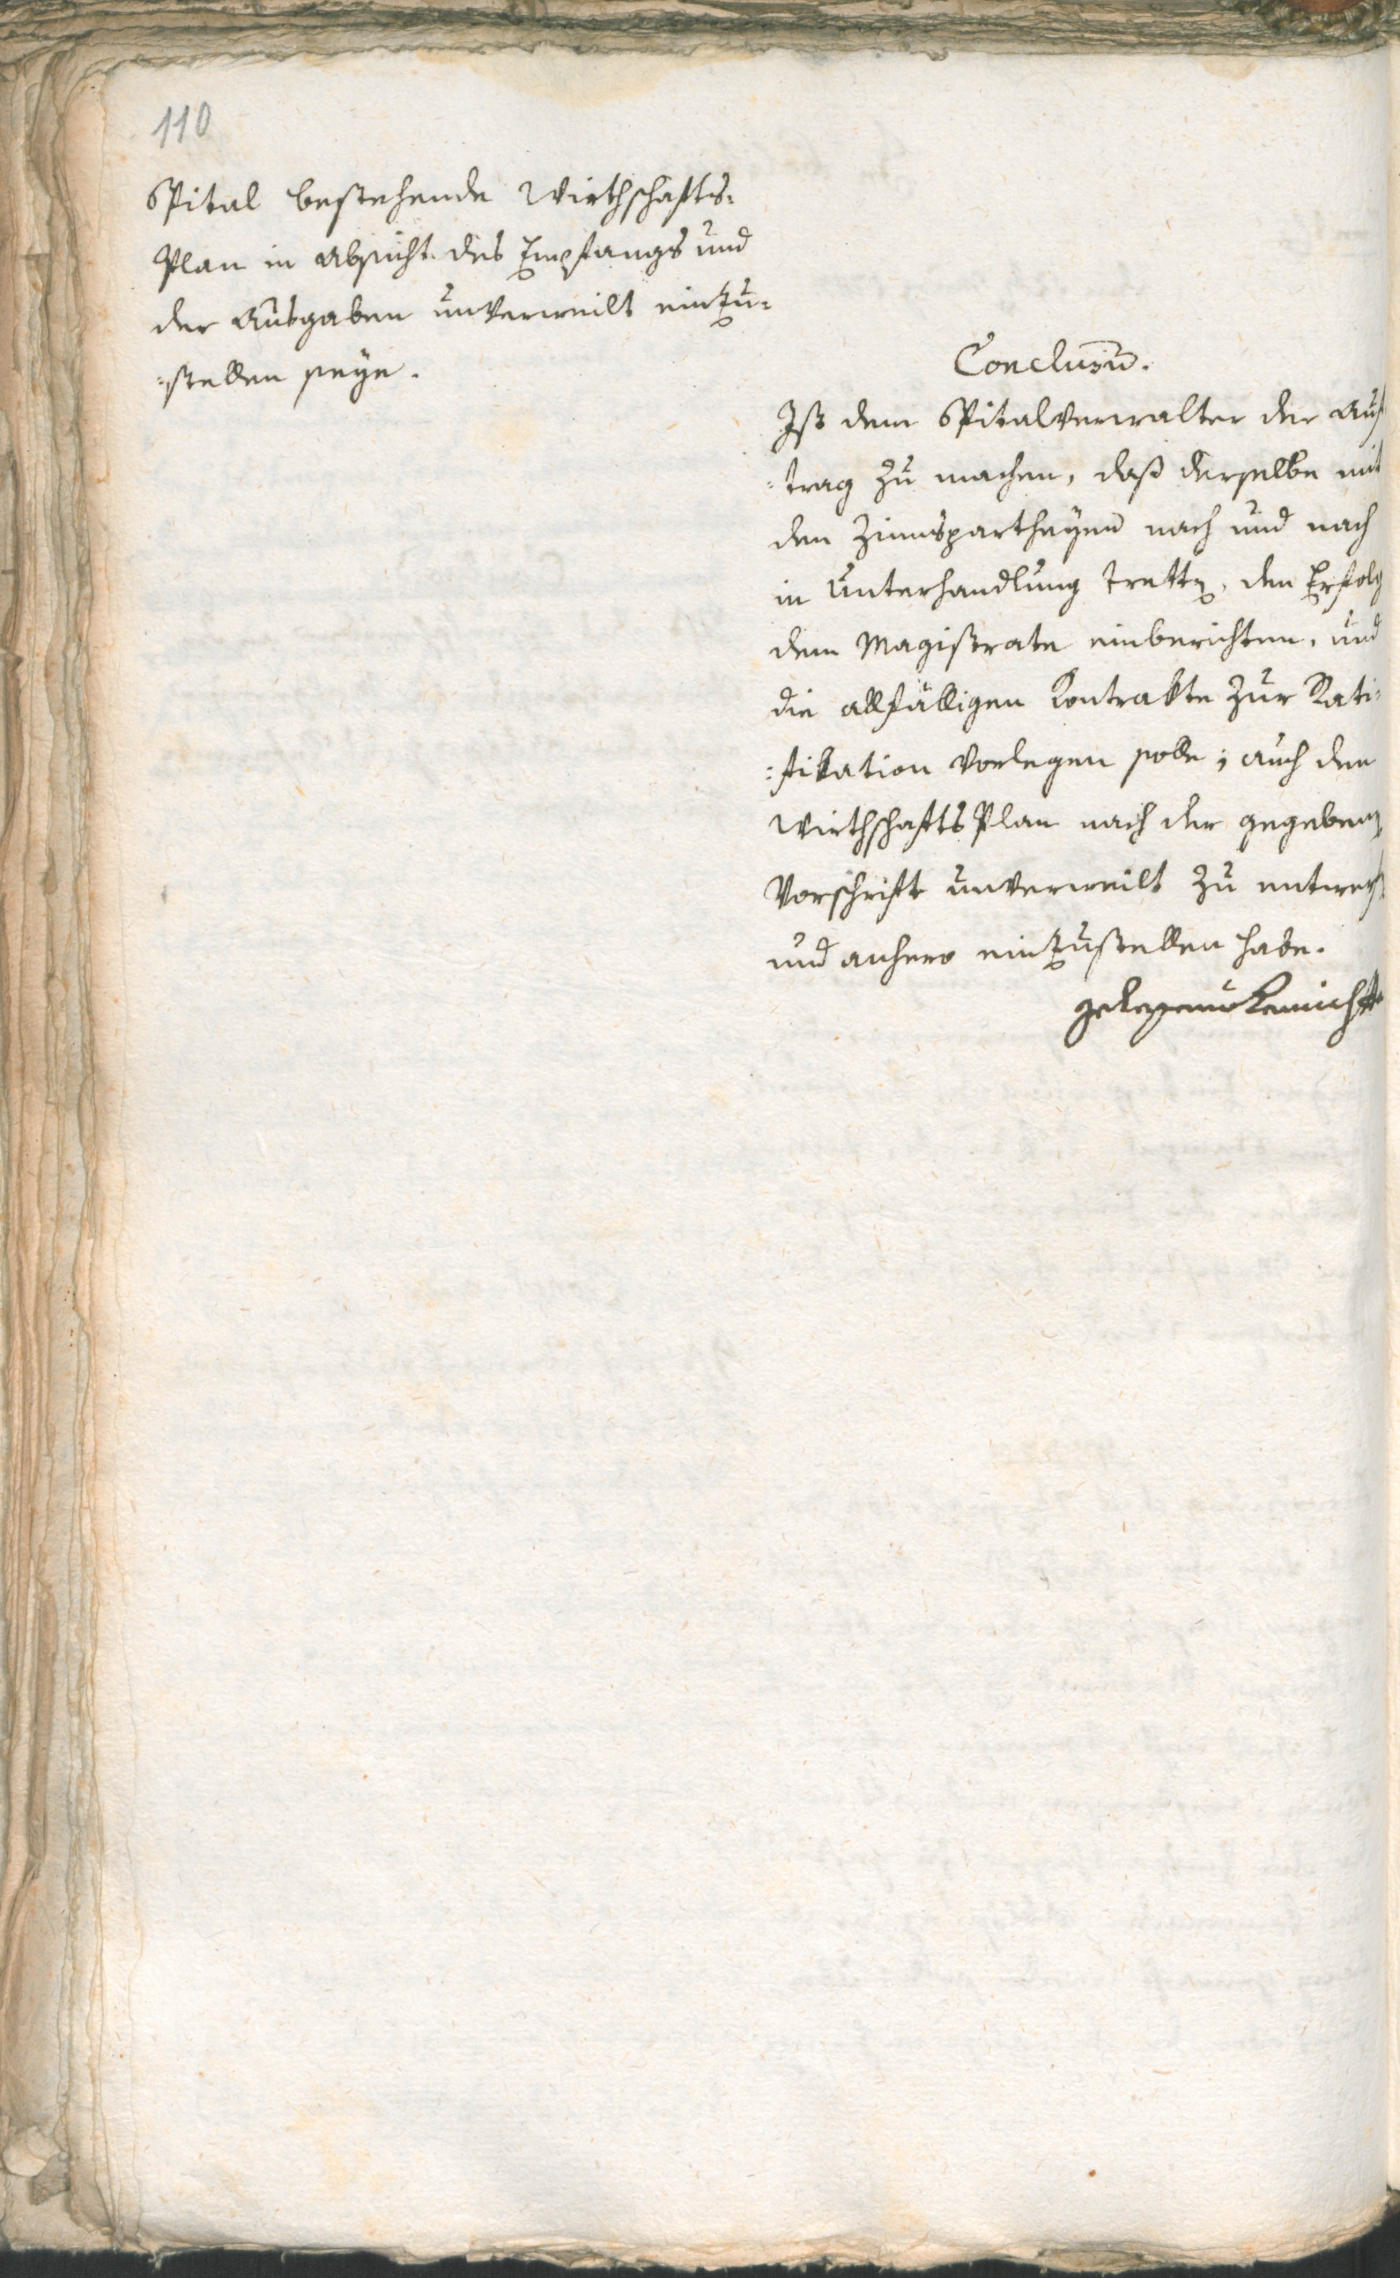 110
Spital bestehende Wirthschafts-
Plan in Absicht des Empfangs und
der Ausgaben unverweilt einzu-
:stellen seye.
Conclusũ.
Ist dem Spitalverwalter der Auf
:trag zu machen, daß derselbe mit
den Zinnspartheyen nach und nach
in Unterhandlung trette, den Erfolg
dem Magistrate einberichten, und
die allfälligen Kontrakte zur Rati-
:fikation vorlegen solle; auch den
Wirthschafts Plan nach der gegeben
Vorschrift unverweilt zu entwerf
und anhero einzustellen habe.